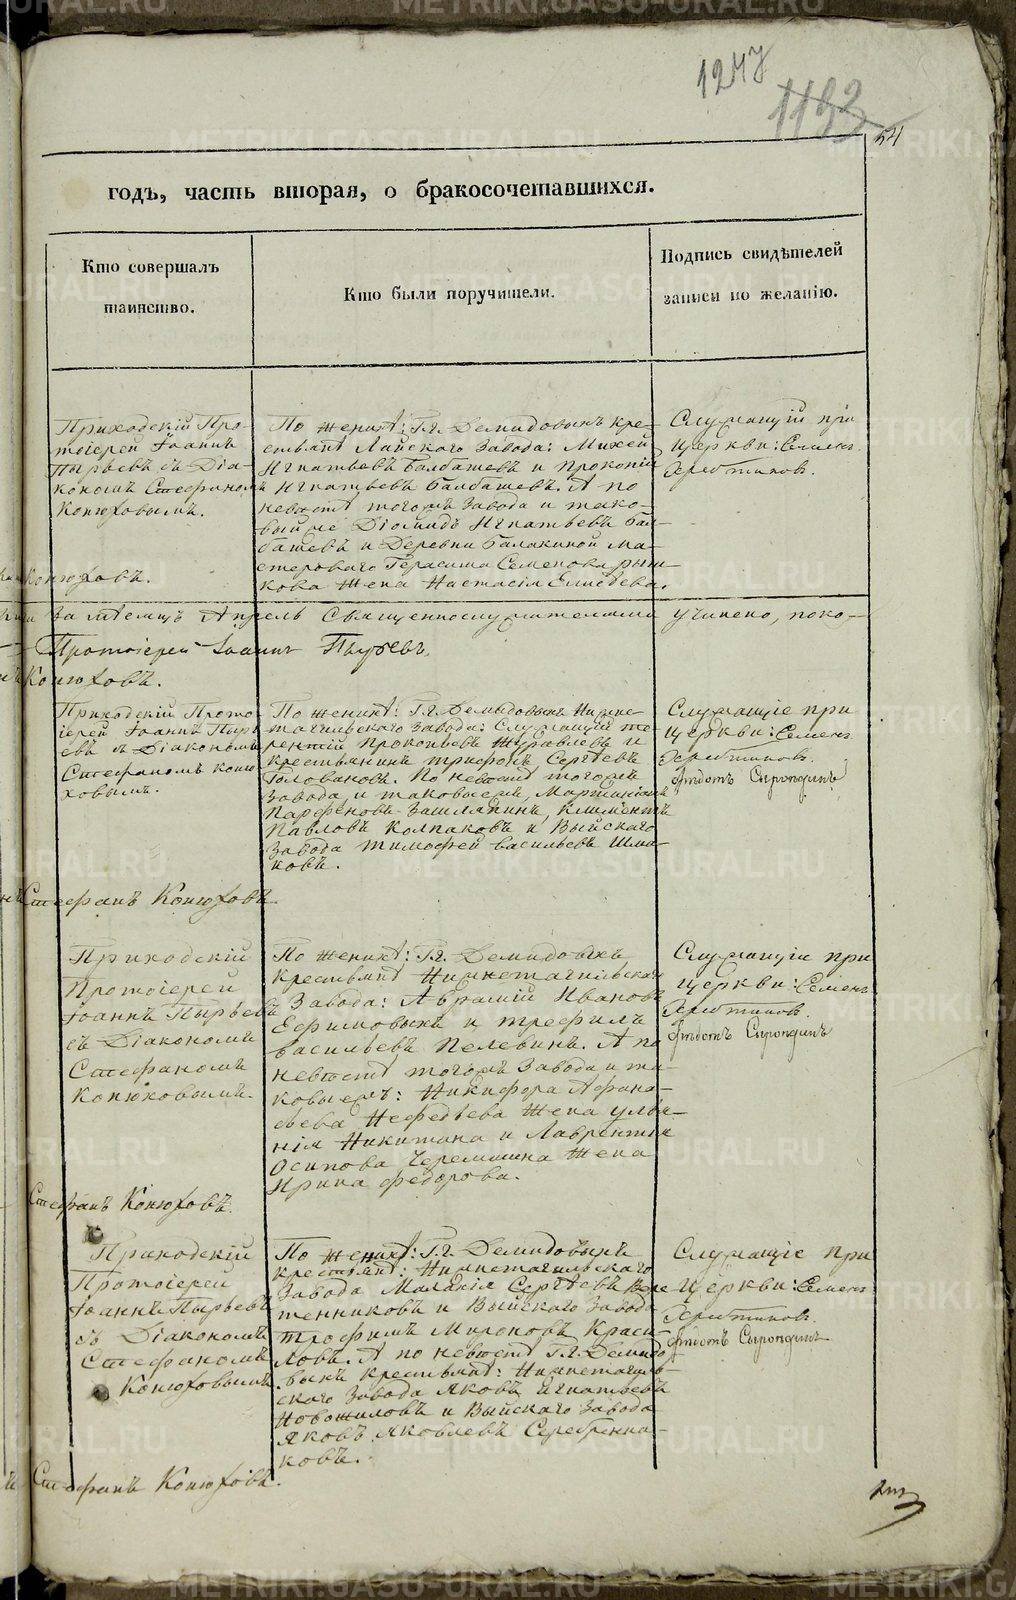 1247
1133
54
годъ, часть вторая, о бракосочетавшихся.
Кто совершалъ
таинство.
Кто были поручители.
Подпись свидѣтелей
записи по желанію.
Приходскій Про-
тоіерей Іоаннъ
Пырьевъ съ Діа-
кономъ Стефаномъ
Конюховымъ.
По женихѣ: Гг. Демидовыхъ кре-
стьянѣ Лайскаго Завода: Михей
Игнатьевъ Балбашевъ и Прокопій
Игнатьевъ Балбашевъ. А по
невѣстѣ тогожъ Завода и тако-
вый же Діомидъ Игнатьевъ Бал-
башевъ и Деревни Балакиной Ма-
стероваго Герасима Семенова
кова жена Настасія Елисѣева.
Служащій при
Церкви: Семенъ
Конюховъ.
за мѣсяцъ Апрель Священнослужителями учинено, поко-
Протоіерей Іоаннъ Пырьевъ.
Конюховъ.
Приходскій Прото-
іерей Іоаннъ Пырь-
евъ съ Діакономъ
Стефаномъ Коню-
ховымъ.
По женихѣ: Гг. Демидовыхъ Нижне-
тагильскаго Завода: Служащій Те-
рентій Прокопьевъ Журавлевъ и
крестьянинъ Трифонъ Сергѣевъ
Головановъ. По невѣстѣ тогожъ
Завода и таковыежъ, Мартиніанъ
Парфеновъ Зашляпинъ, Климентъ
Павловъ Колпаковъ и Выйскаго
Завода Тимофей Васильевъ Шма-
ковъ.
Служащіе при
Церкви: Семенъ
Стефанъ Конюховъ.
Приходскій
Протоіерей
Іоаннъ Пырьевъ
съ Діакономъ
Стефаномъ
Конюховымъ.
По женихѣ: Гг. Демидовыхъ
крестьянѣ Нижнетагильскаго
Завода: Аврамій Ивановъ
Ефимовыхъ и Трефилъ
Васильевъ Пелевинъ. А по
невѣстѣ тогожъ Завода и та-
ковыежъ: Никифора Афана-
сьева Нефедьева жена Улья-
нія Никитина и Лаврентія
Осипова Черемшина жена
Ирина Федорова.
Служащіе при
Церкви: Семенъ
Стефанъ Конюховъ.
Приходскій
Протоіерей
Іоаннъ Пырьевъ
съ Діакономъ
Стефаномъ
Конюховымъ
По женихѣ: Гг. Демидовыхъ
крестьянѣ: Нижнетагильскаго
Завода Малахія Сергѣевъ Вере-
тенниковъ и Выйскаго Завода
Трофимъ Мироновъ Краси-
ловъ. А по невѣстѣ Гг. Демидо-
выхъ крестьянѣ: Нижнетагиль-
скаго Завода Яковъ Игнатьевъ
Новожиловъ и Выйскаго Завода
Яковъ Яковлевъ Серебренни-
ковъ.
Служащіе при
Церкви: Семенъ
Стефанъ Конюховъ.
METRIKI.GASO-URAL.RU